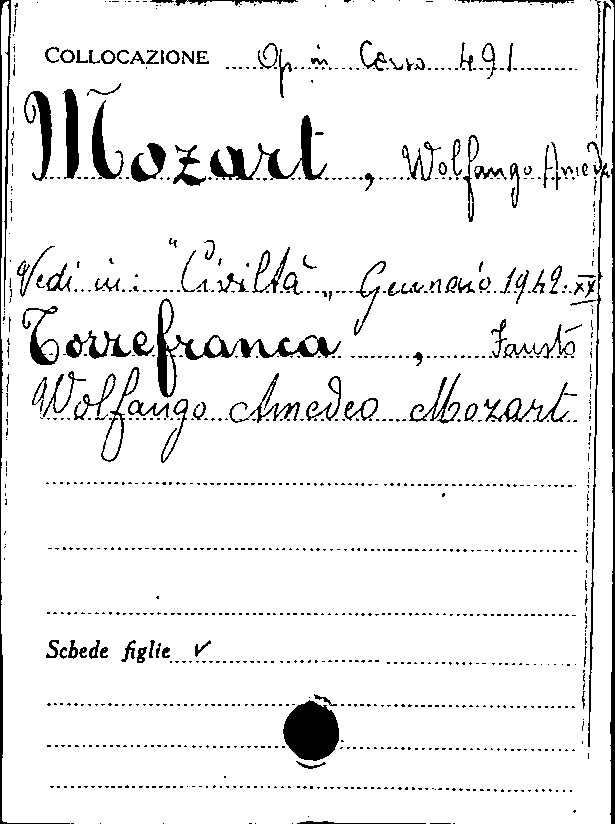 COLLOCAZIONE Op in Corso 491
Mozart, Wolfango Amedeo
Vedi in: "Civiltà„ Gennaio 1942.XX
Torrefranca, Fausto
Wolfango Amedeo Mozart
Schede figlie ✓